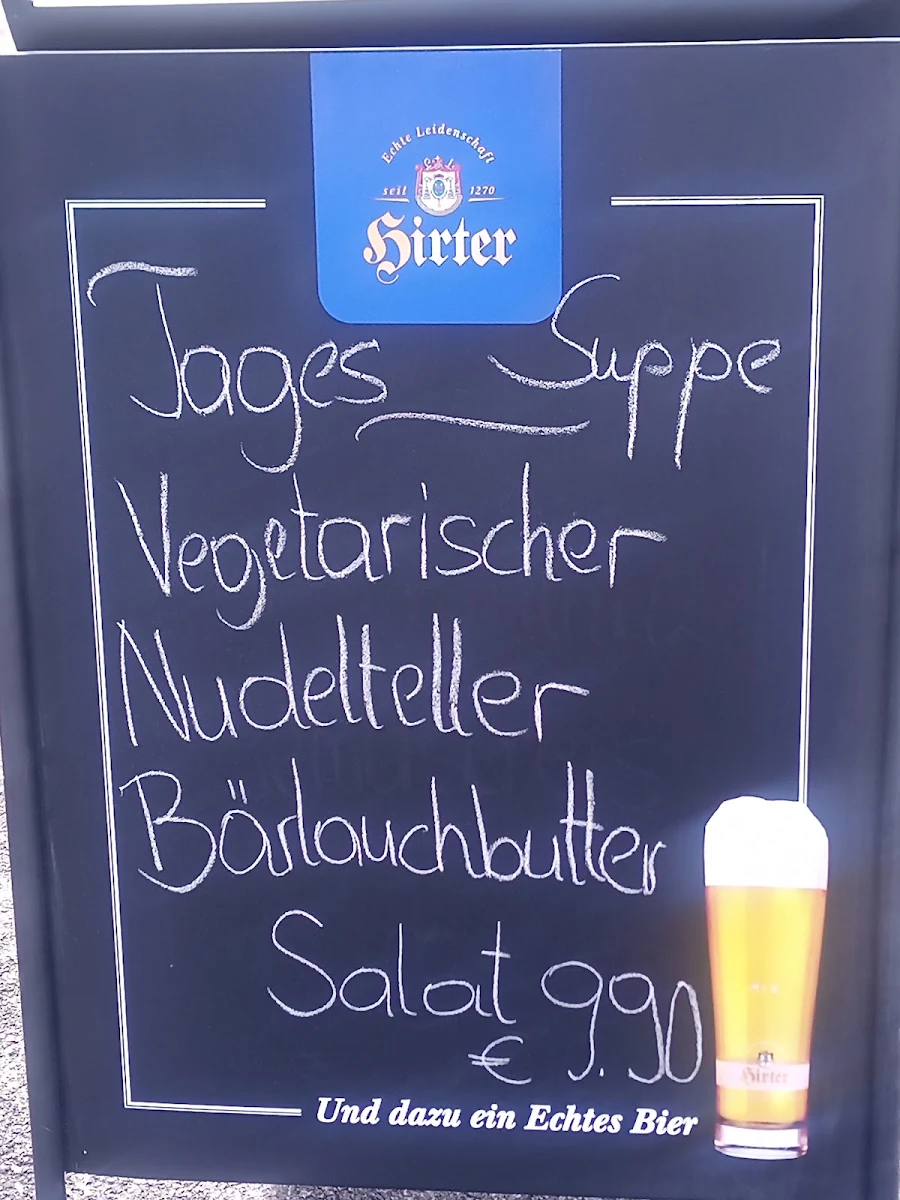 Echte Leidenschaft
seit 1270
Hirter
Tages Suppe
Vegetarischer
Nudelteller
Bärlauchbutter
Salat 9.90
€
Hirter
Und dazu ein Echtes Bier